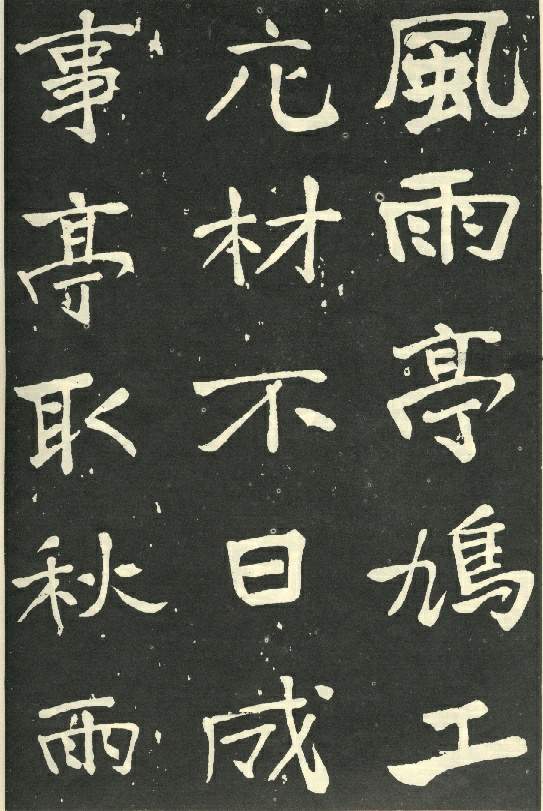 風雨亭鳩工
庀材不日成
事亭取秋雨